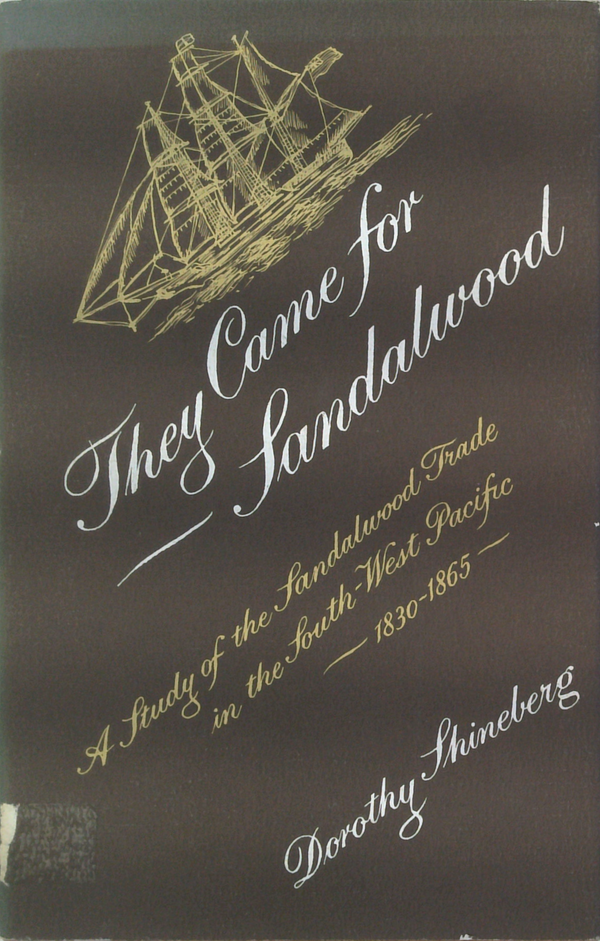 They Came for
Sandalwood
A Study of the Sandalwood Trade
in the South-West Pacific
— 1830-1865 —
Dorothy Shineberg